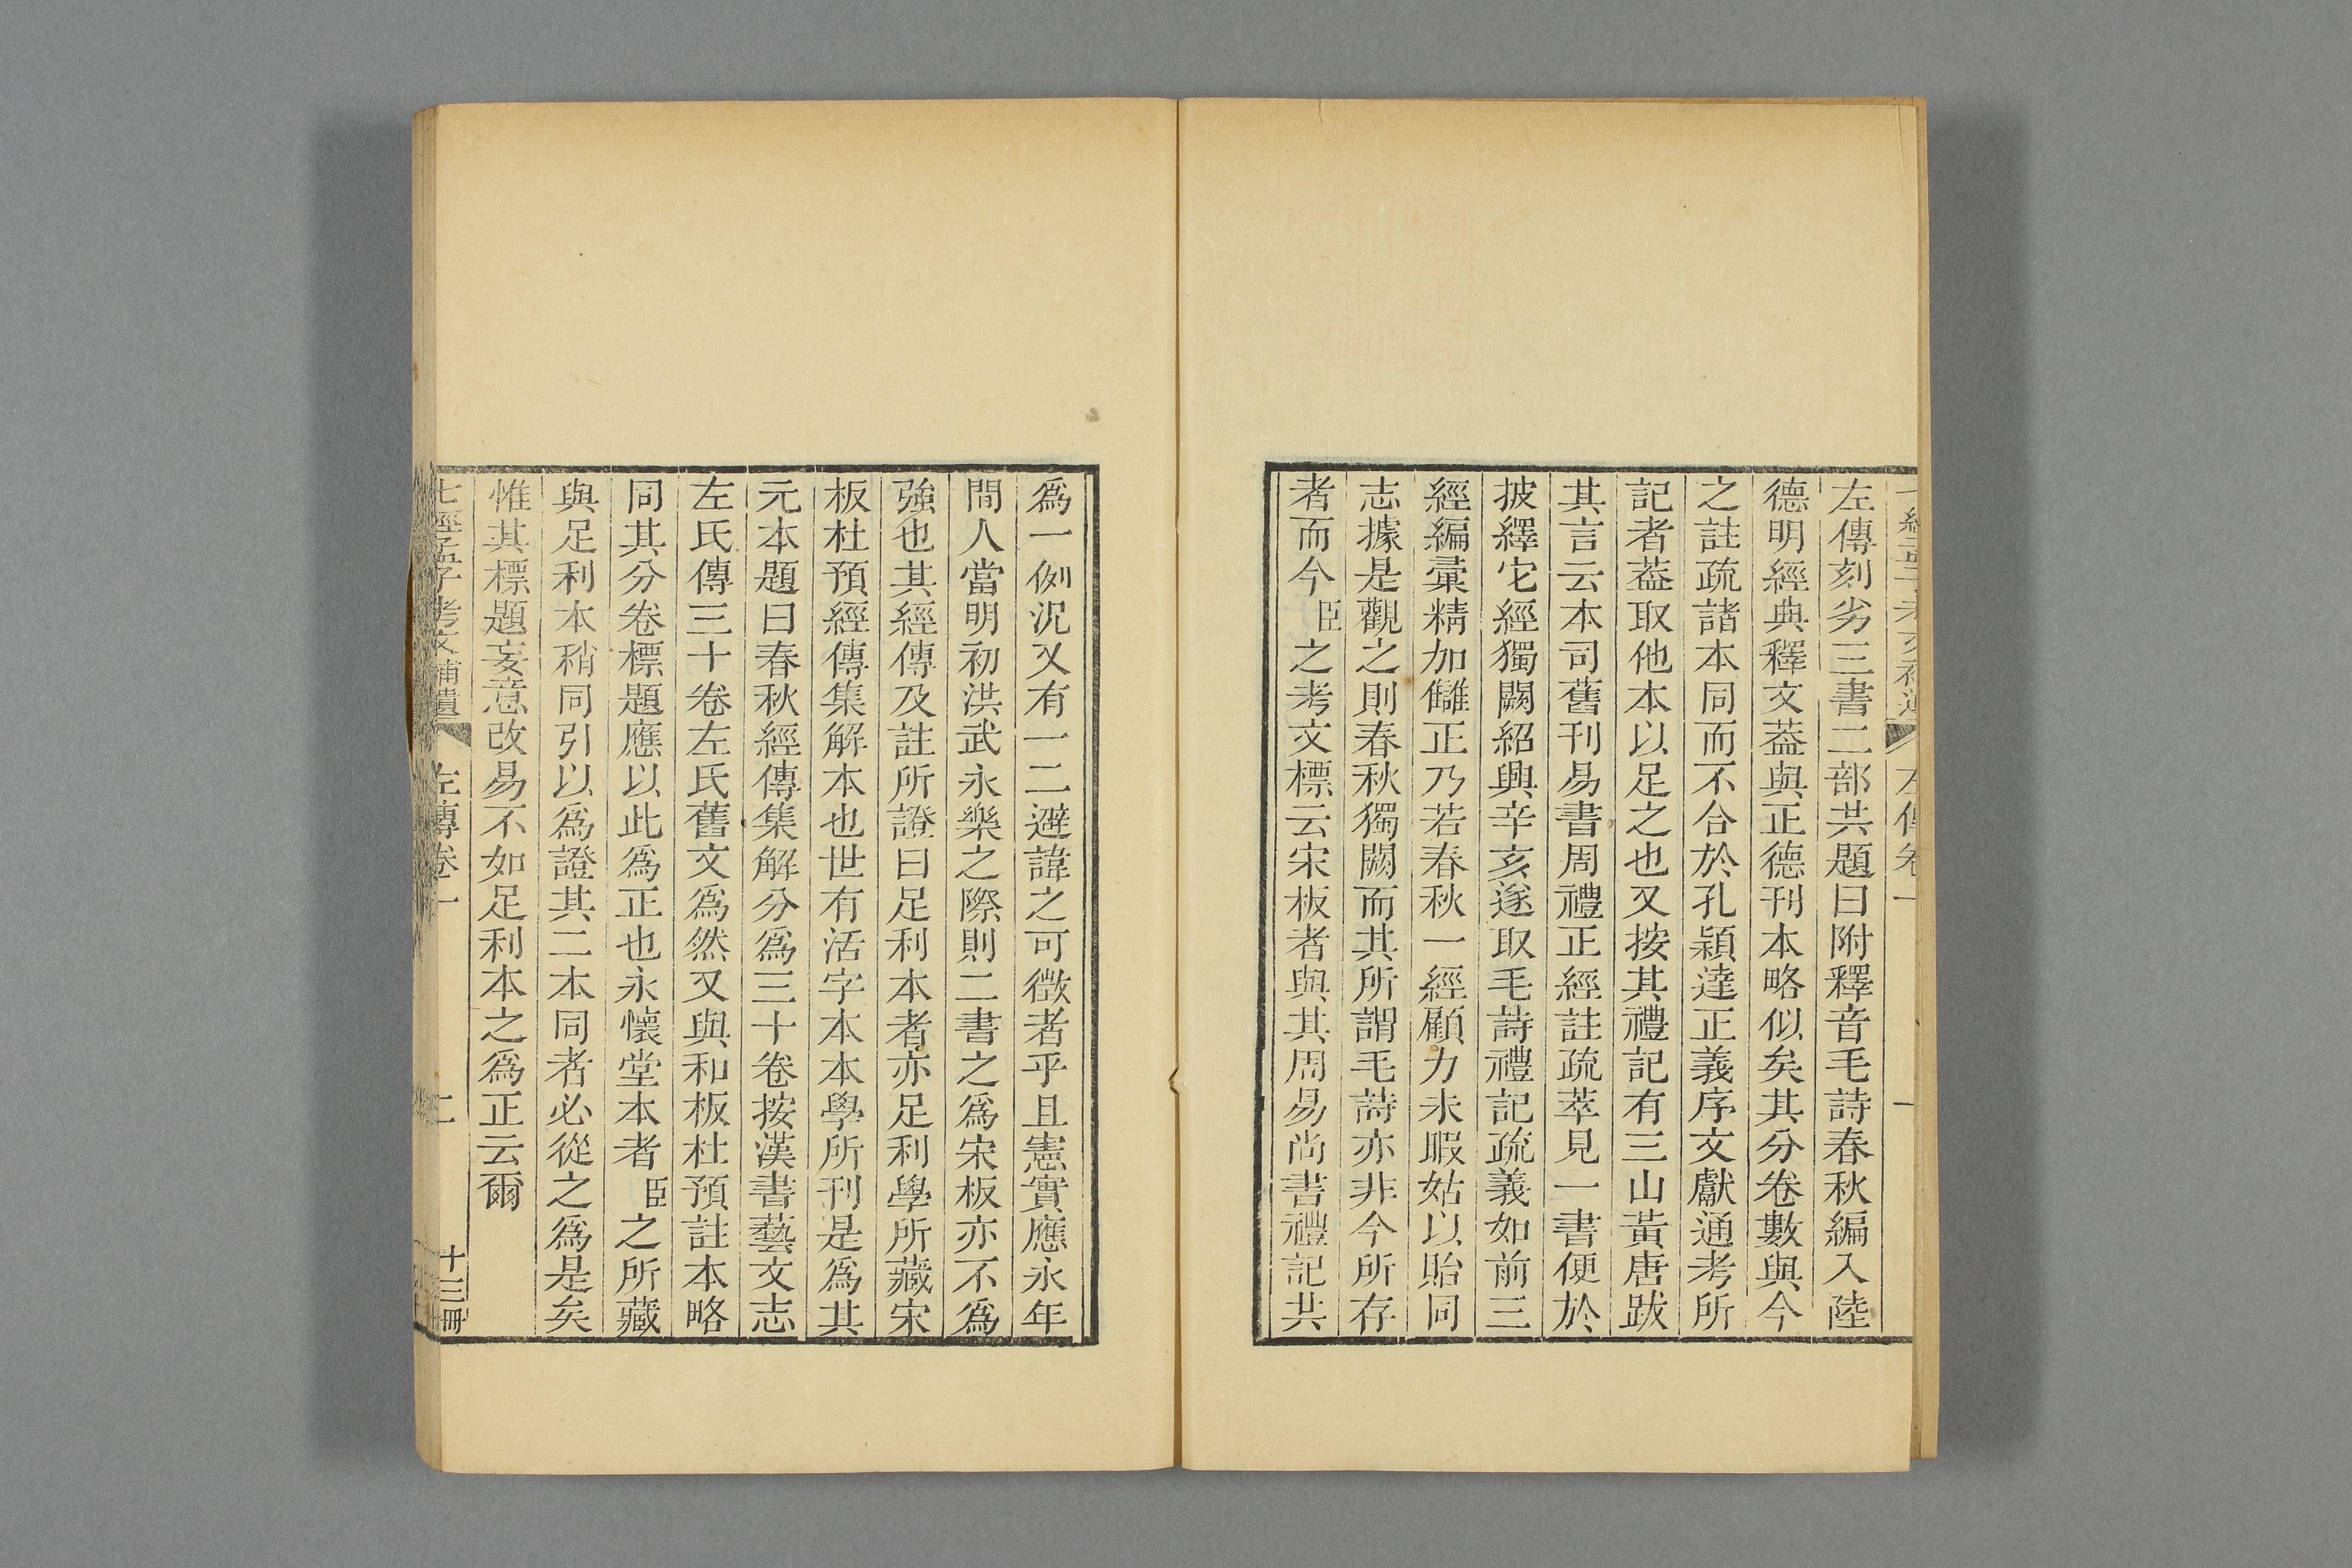 左傳刻劣三書二部共題曰附釋音毛詩春秋編入陸
德明經典釋文葢與正德刊本略似矣其分卷數與今
之註疏諸本同而不合於孔穎達正義序文獻通考所
記者葢取他本以足之也又按其禮記有三山黃唐跋
其言云本司舊刊易書周禮正經註疏萃見一書便於
披繹它經獨闕紹興辛亥遂取毛詩禮記疏義如前三
經編彙精加讎正乃若春秋一經顧力未暇姑以貽同
志據是觀之則春秋獨闕而其所謂毛詩亦非今所存
者而今臣之考文標云宋板者與其周易尚書禮記共
爲一例況又有一二避諱之可徵者乎且憲實應永年
間人當明初洪武永樂之際則二書之爲宋板亦不爲
強也其經傳及註所證曰足利本者亦足利學所藏宋
板杜預經傳集解本也世有活字本本學所刊是爲其
元本題曰春秋經傳集解分爲三十卷按漢書藝文志
左氏傳三十卷左氏舊文爲然又與和板杜預註本略
同其分卷標題應以此爲正也永懷堂本者臣之所藏
與足利本稍同引以爲證其二本同者必從之爲是矣
惟其標題妄意改易不如足利本之爲正云爾
七經孟子考文補遺 左傳卷一 二 十三冊